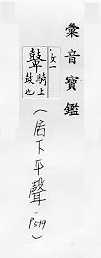 彙音寶鑑
鼙
騎上
鼓也
(居下平聲